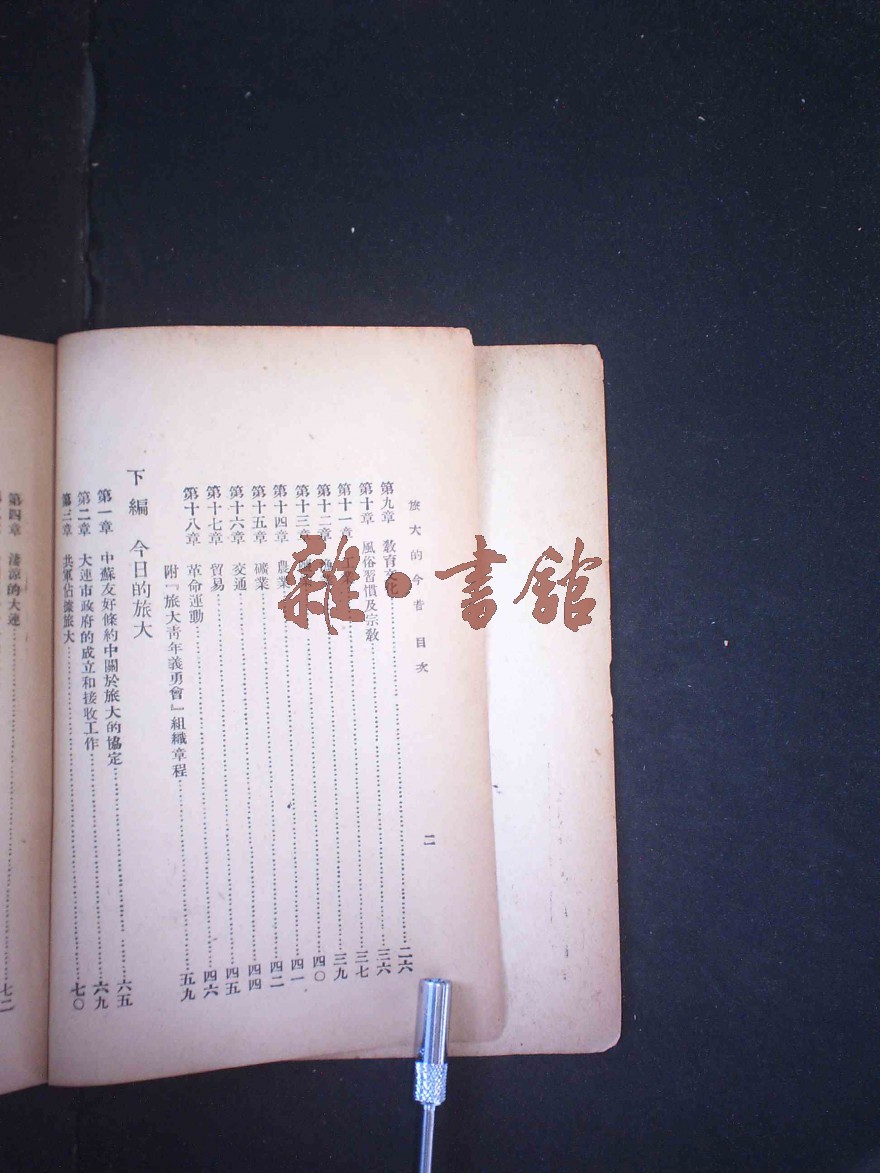 旅大的今昔 目次 二
第九章 教育文化 二六
第十章 風俗習慣及宗教 三六
第十一章 三七
第十二章 三九
第十三章 四〇
第十四章 農業 四一
第十五章 礦業 四二
第十六章 交通 四四
第十七章 貿易 四五
第十八章 革命運動 四六
附『旅大靑年義勇會』組織章程 五九
下編 今日的旅大
第一章 中蘇友好條約中關於旅大的協定 六五
第二章 大連市政府的成立和接收工作 六九
第三章 共軍佔據旅大 七〇
第四章 淒涼的大連 七二
雜·書館